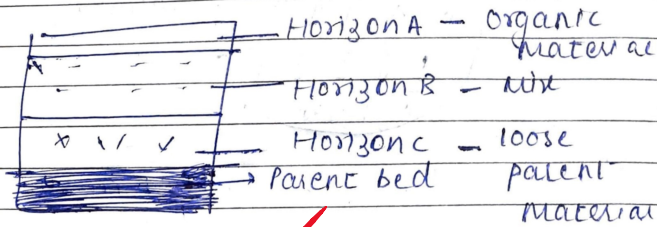 Horizon A - organic
material
Horizon B - Mix
Horizon C - loose
Parent bed parent
Material